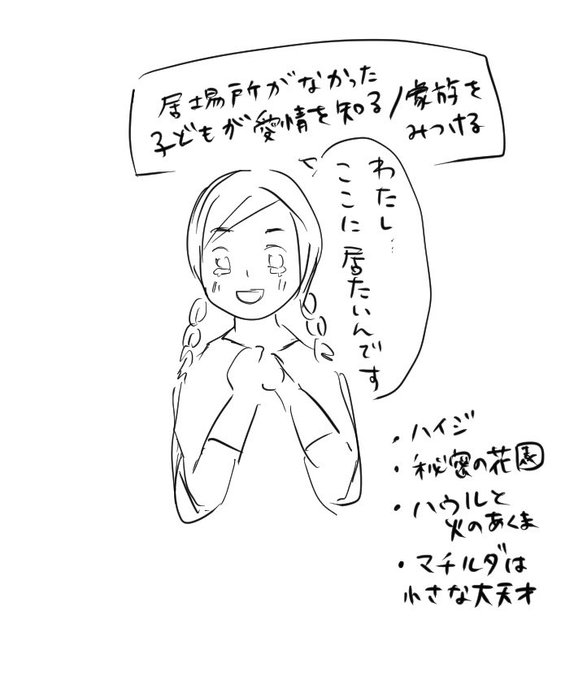 居場所がなかった
子どもが愛情を知る/家族を
みつける
わたし…
ここに居たいんです
・ハイジ
・秘密の花園
・ハウルと
火のあくま
・マチルダは
小さな大天才